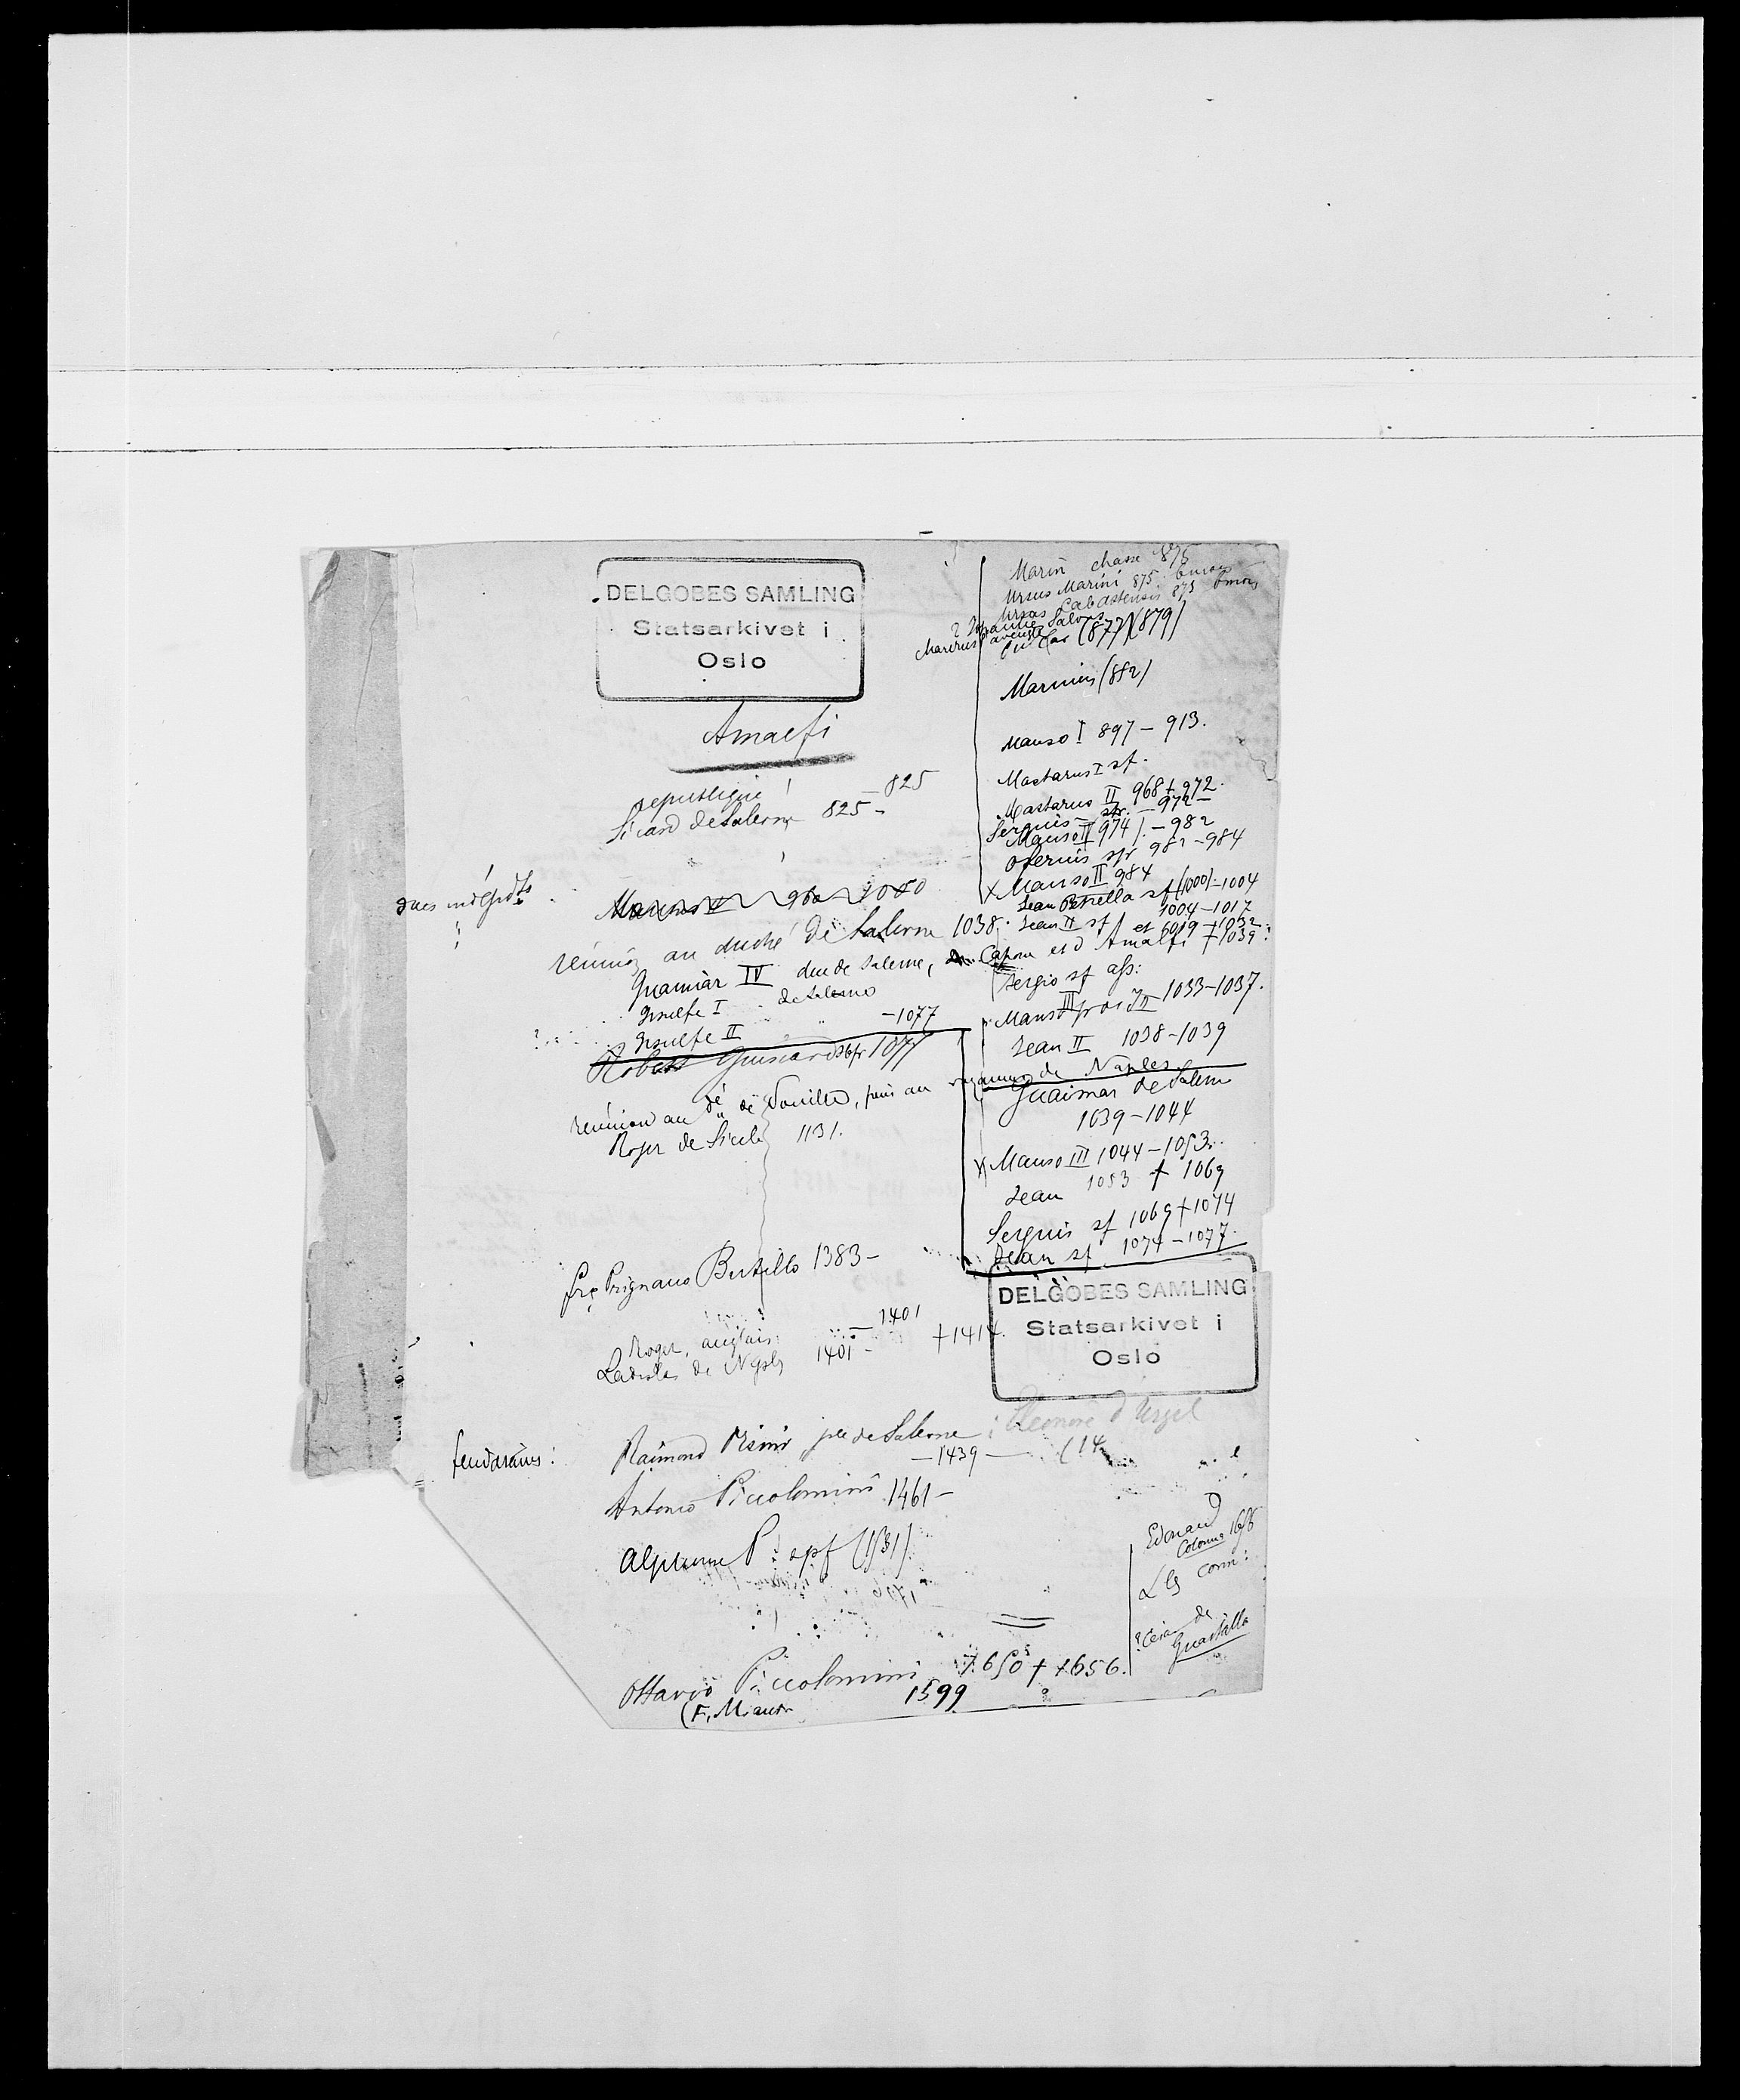 DELGOBES SAMLING
Statsarkivet i
Oslo
Amalfi
republique — 825
Sicard de Salerne 825 -
ducs indépdts
Manso II 960 1040
réunion au duché de Salerne 1038
Guaimar IV duc de Salerne, Capoue et d'Amalfi
Gisulfe I de Salerno
Gisulfe II — 1077
Robert Guiscard 1077
réunion au dé de Pouille, puis au royaume de Naples
Roger de Sicile 1131.
frç Prignano Butillo 1383 -
Roger, anglais — 1401
Ladislas de Naples 1401 - † 1414.
feudataires:
Raimond Orsini pce de Salerne : Eleonore d'Urgel
— 1439 — (14
Antonio Piccolomini 1461 -
Alphonse P: spf (1531)
Ottavio Piccolomini 1650 † 1656.
1599
Marin chasse 875
Ursus Marini 875 6 mois
Ursus Calastensis 875 6 mois
Pulcar (877)(879)
Marinus (882)
Manso I 897 - 913.
Mastarus I sf.
Mastarus II 968 † 972.
Sergius sfr. - 972 -
Manso II 974 - 982
Oferius sfr 982 - 984
X Manso II 984
Jean Petrella sf (1000) - 1004
Jean II sf 1004 - 1017
et 1019 - 1032
† 1039
Sergio sf ass:
Manso III fr 1033 - 1037.
Jean II 1038 - 1039
Guaimar de Salerne
1039 - 1044
X Manso III 1044 - 1053.
Jean 1053 † 1069
Sergius sf 1069 † 1074
Jean sf 1074 - 1077.
DELGOBES SAMLING
Statsarkivet i
Oslo
Edouard
Colonna
Guastalla